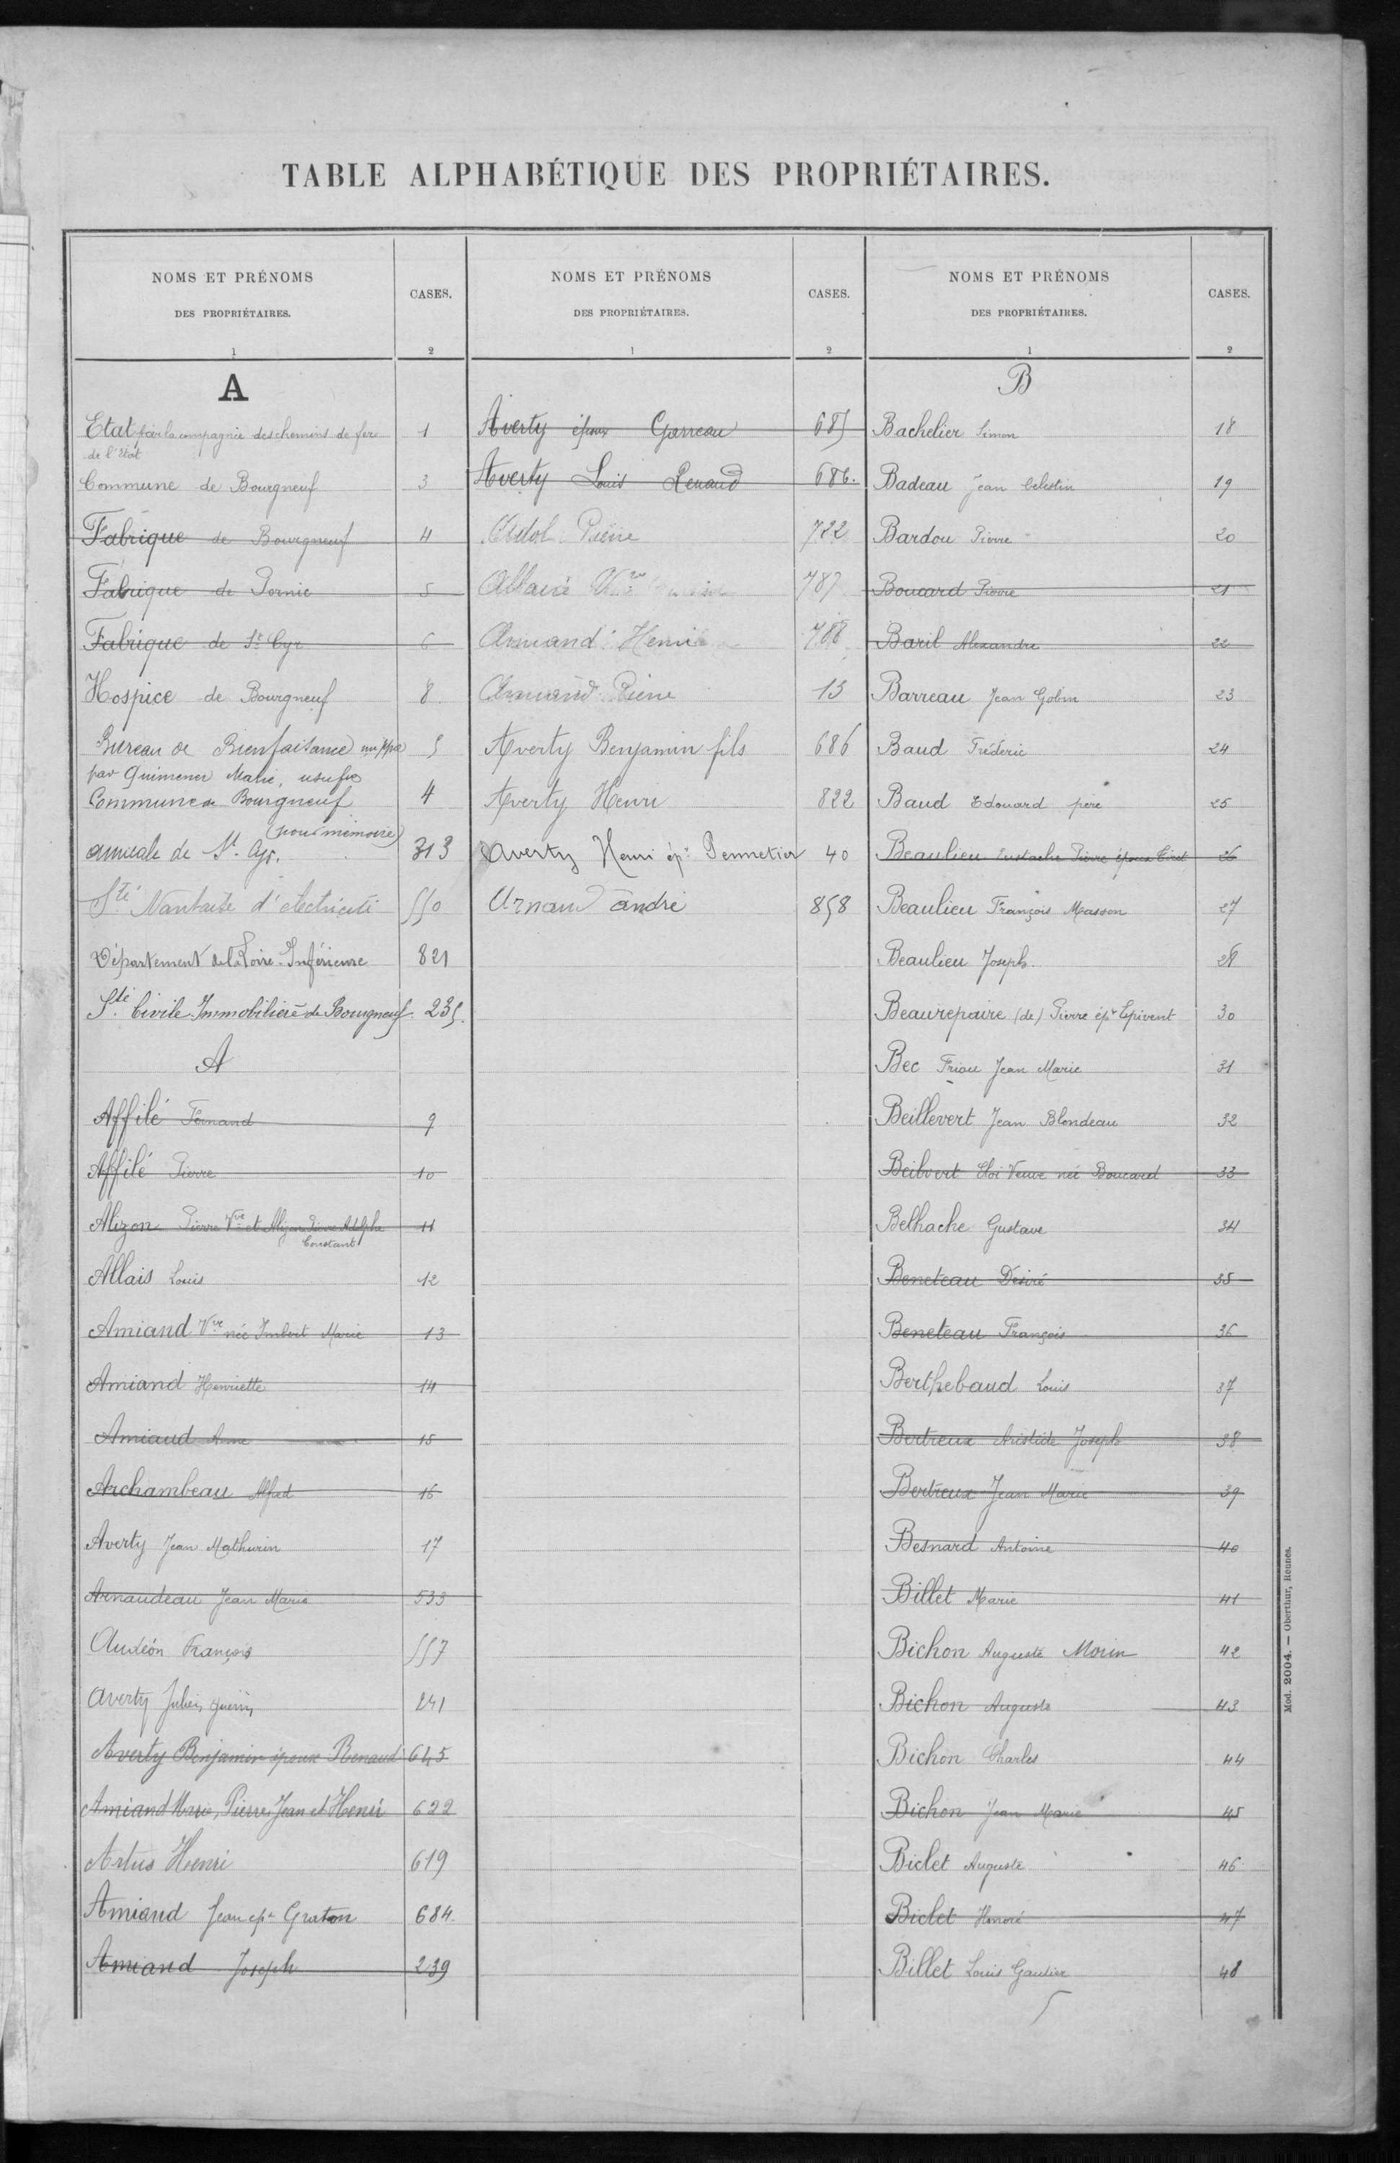 TABLE ALPHABÉTIQUE DES PROPRIÉTAIRES.
NOMS ET PRÉNOMS
DES PROPRIÉTAIRES.
CASES.
1
2
A
Etat par la compagnie des chemins de fer 1
de l'Etat
Commune de Bourgneuf 3
Fabrique de Bourgneuf 4
Fabrique de Pornic 5
Fabrique de St Cyr 6
Hospice de Bourgneuf 8
Bureau de Bienfaisance 5
par Quimener Marie, usuf
Commune de Bourgneuf 4
(pour mémoire)
amicale de St. Cyr. 313
Sté Nantaise d'électricité 550
Département de la Loire-Inférieure 821
Sté Civile Immobilière de Bourgneuf 235.
A
Affilé Fernand 9
Affilé Pierre 10
Alizon Pierre Vve et Alizon Pierre Adolphe 11
Constant
Allais Louis 12
Amiand Vve née Imbert Marie 13
Amiand Henriette 14
Amiaud Anne 15
Archambeau Alfred 16
Averty Jean Mathurin 17
Arnaudeau Jean Marie 533
Audéon François 557
Averty Julien Guerin 241
Averty Benjamin époux Renaud 645
Amiand Marie, Pierre, Jean et Henri 622
Artus Henri 619
Amiand Jean epx Graton 684
Amiand Joseph 239
NOMS ET PRÉNOMS
DES PROPRIÉTAIRES.
CASES.
1
2
Averty époux Garreau 685
Averty Louis Renaud 686.
Pierre 722
Vve 787
Henri 788
Pierre 13
Averty Benjamin fils 686
Averty Henri 822
Averty Henri épx Pennetier 40
Arnaud André 858
NOMS ET PRÉNOMS
DES PROPRIÉTAIRES.
CASES.
1
2
B
Bachelier Simon 18
Badeau Jean Celestin 19
Bardou Pierre 20
Boucard Pierre 21
Baril Alexandre 22
Barreau Jean Gobin 23
Baud Fréderic 24
Baud Edouard père 25
Beaulieu Eustache Pierre époux 26
Beaulieu François Masson 27
Beaulieu Joseph 28
Beaurepaire (de) Pierre épx Epivent 30
Bec Friou Jean Marie 31
Beillevert Jean Blondeau 32
Beilvert Eloi Veuve née Boucard 33
Belhache Gustave 34
Beneteau Désiré 35
Beneteau François 36
Berthebaud Louis 37
Bertreux Aristide Joseph 38
Bertreux Jean Marie 39
Besnard Antoine 40
Billet Marie 41
Bichon Auguste Morin 42
Bichon Auguste 43
Bichon Charles 44
Bichon Jean Marie 45
Biclet Auguste 46
Biclet Honoré 47
Billet Louis Gautier 48
Mod. 2004. — Oberthur, Rennes.